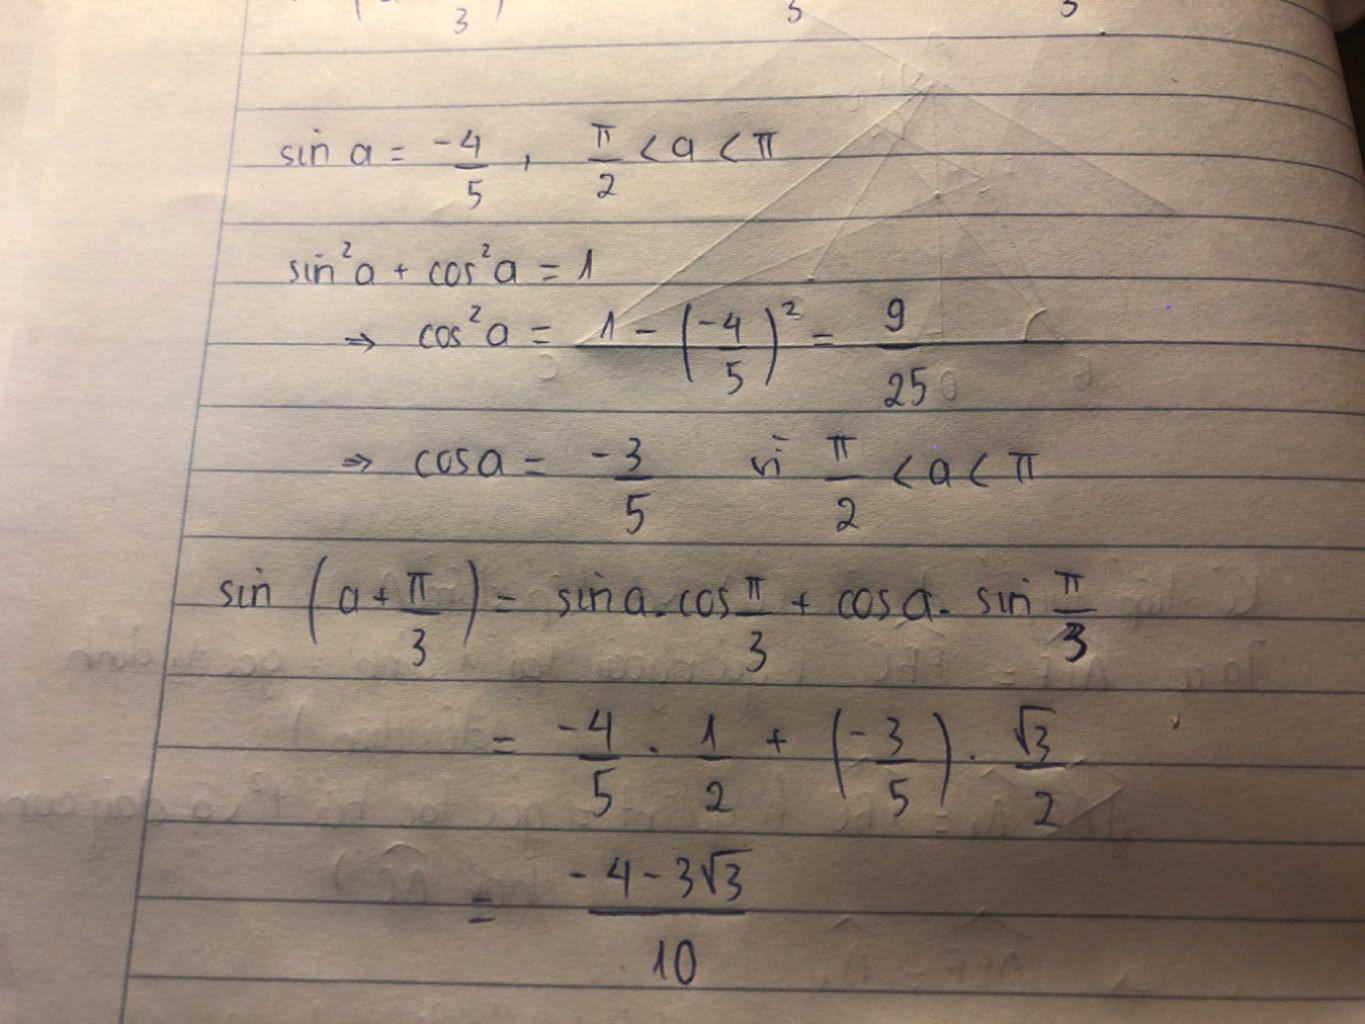 sin a = -4/5 , π/2 < a < π
sin²a + cos²a = 1
⇒ cos²a = 1 - (-4/5)² = 9/25
⇒ cosa = -3/5 vì π/2 < a < π
sin (a + π/3) = sina . cos π/3 + cosa . sin π/3
= -4/5 . 1/2 + (-3/5) . √3/2
= -4-3√3/10